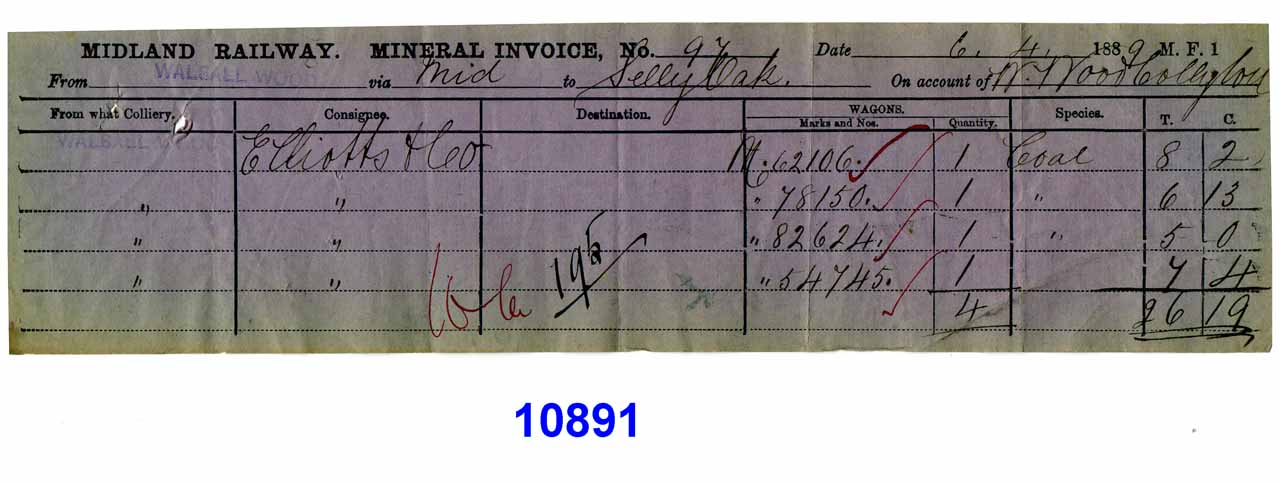 MIDLAND RAILWAY. MINERAL INVOICE, No. 97 Date 6. 4. 1889 M. F. 1
From WALSALL WOOD via Mid to Selly Oak. On account of W. Wood Colly Co
From what Colliery. Consignee. Destination. WAGONS. Species. T. C.
Marks and Nos. Quantity.
WALSALL WOOD Elliotts & Co M. 62106. 1 Coal 8 2
" " " 78150. 1 " 6 13
" " " 82624. 1 " 5 0
" " " 54745. 1 7 4
195 4 26 19
10891